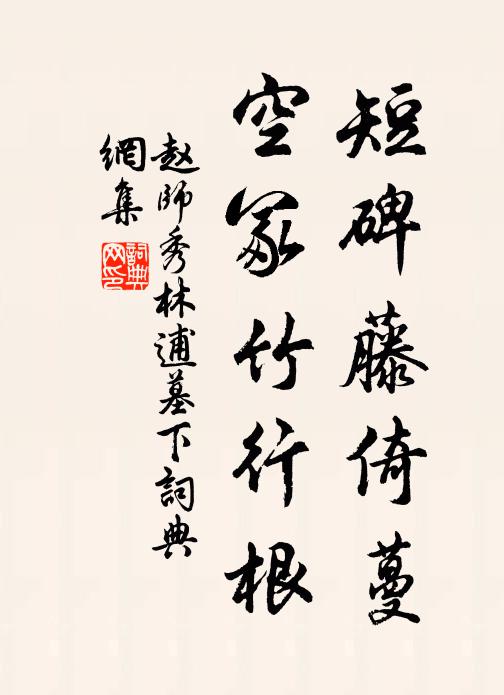 短碑藤倚蔓
空冢竹行根
赵師秀林逋墓下詞典
網集
詞典網印